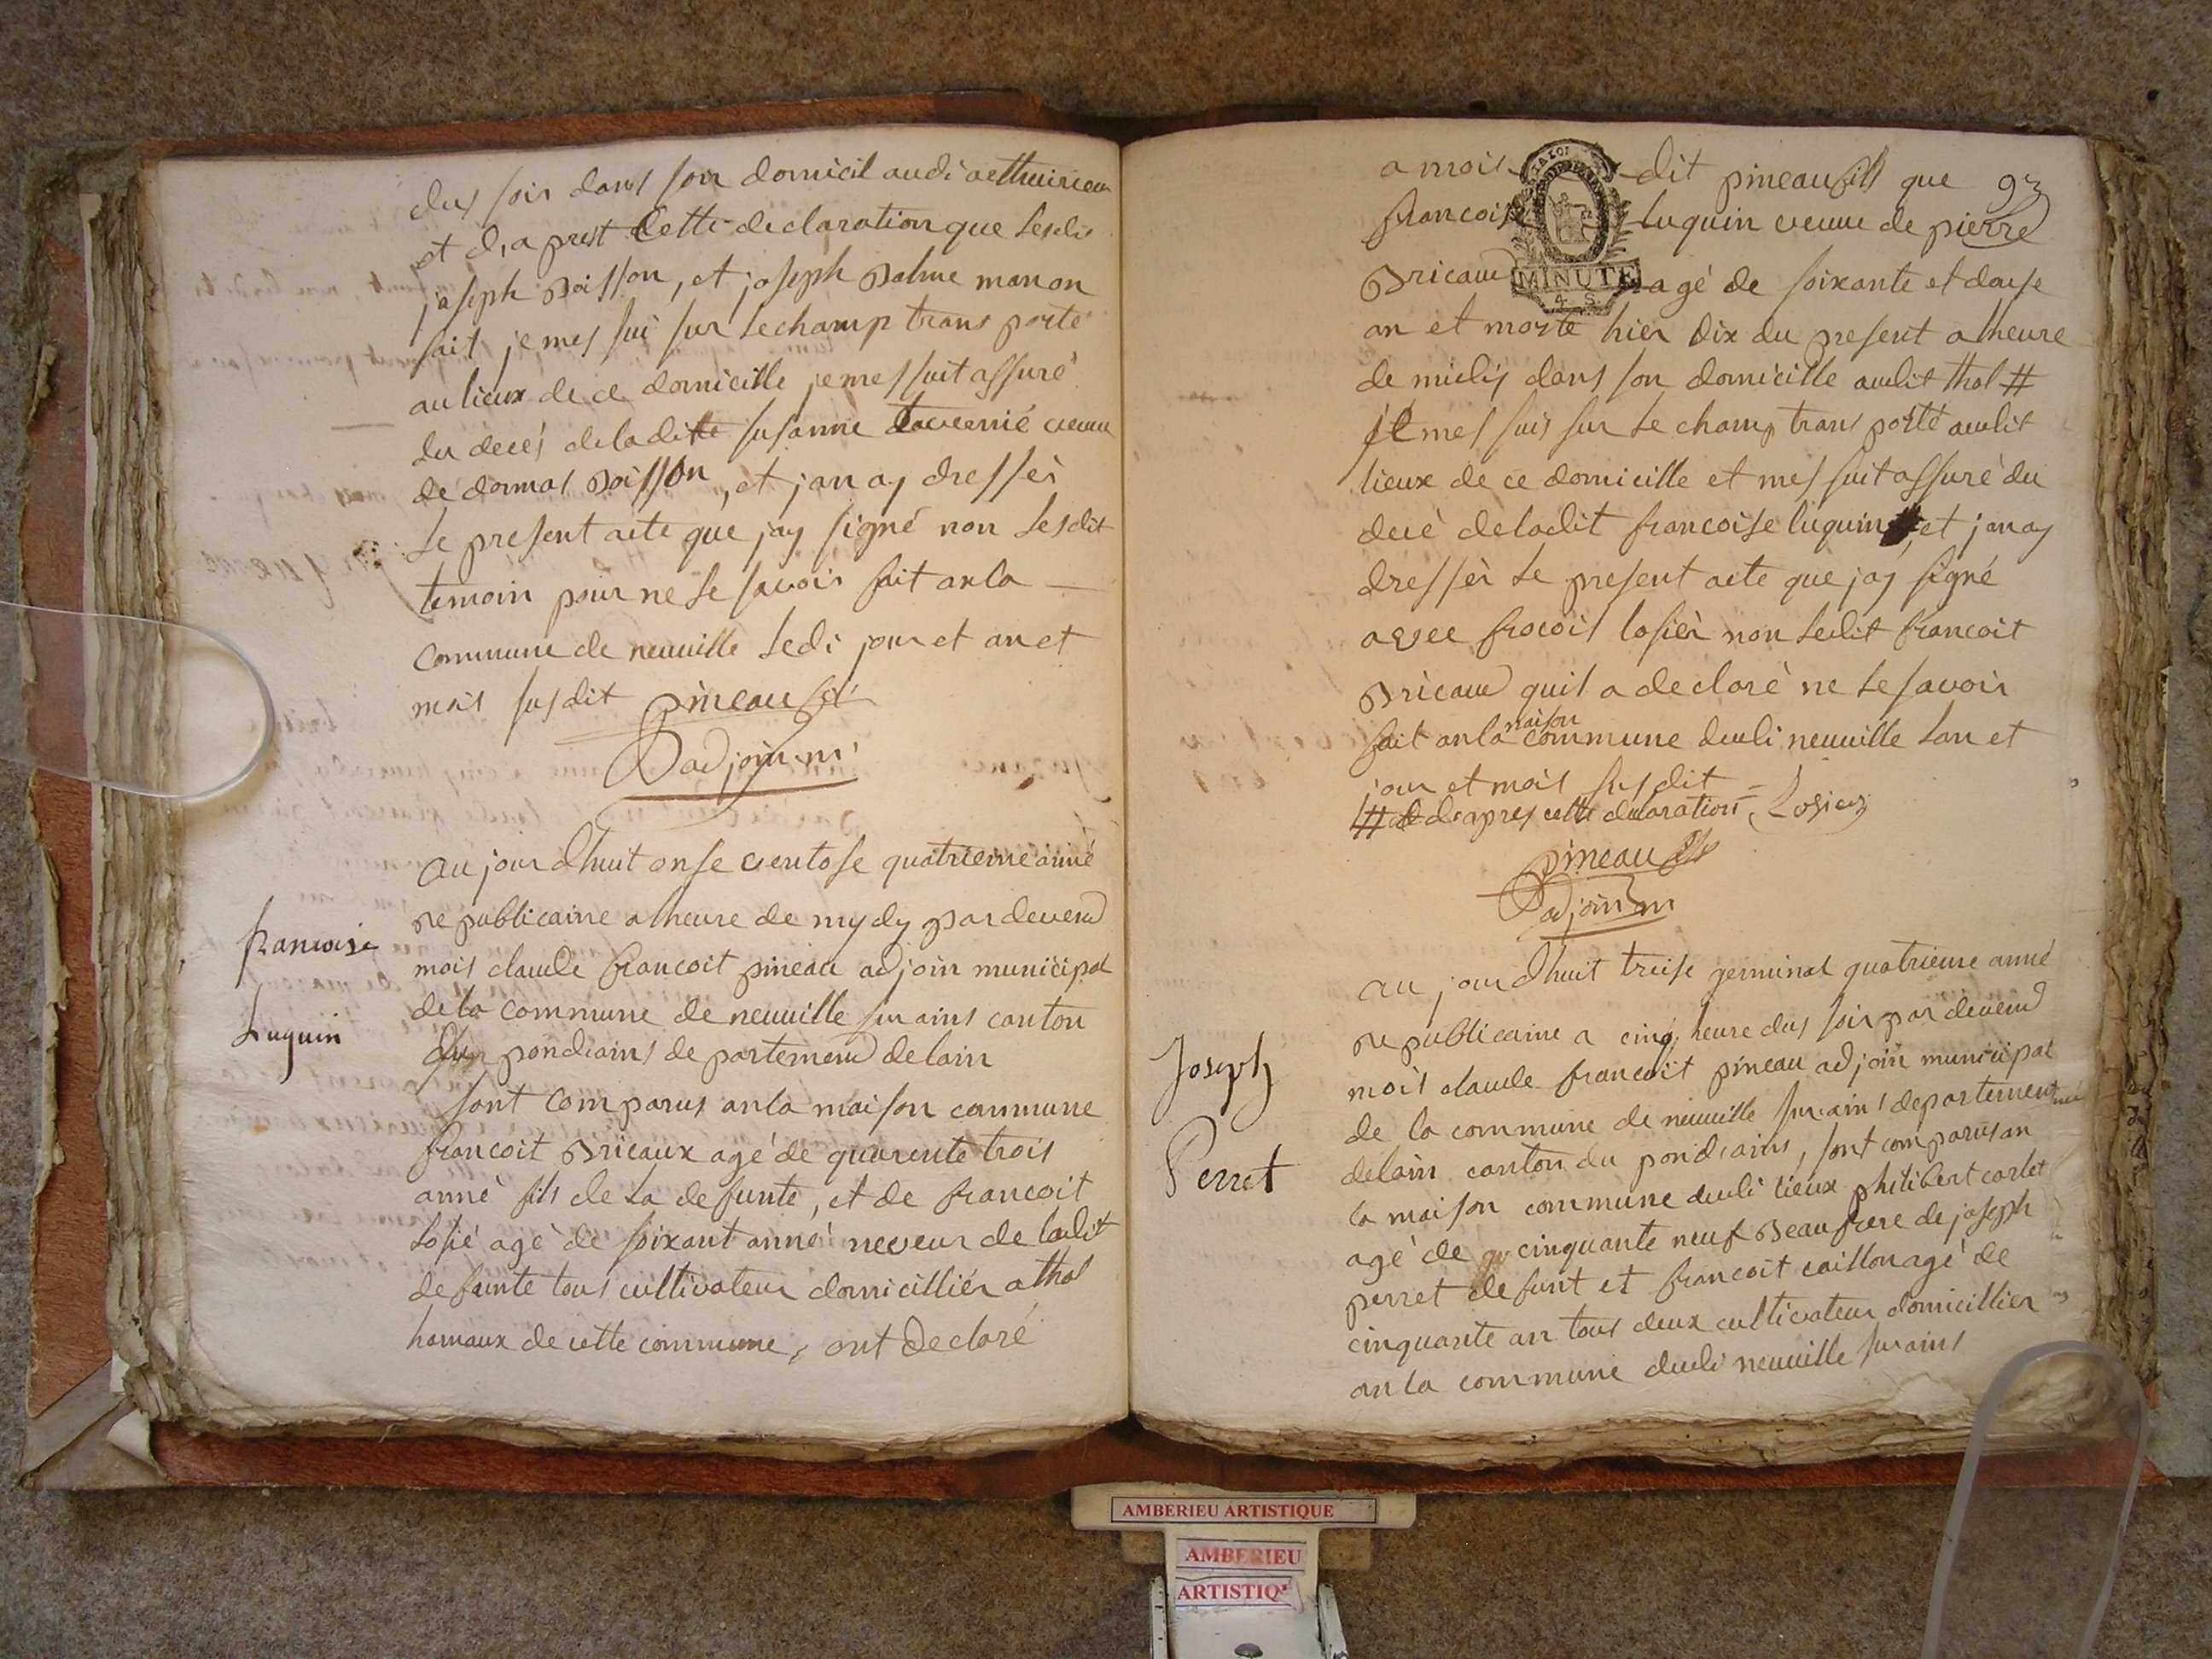 dus soir dans son domicil audi arthuirieu
et d,a prest Cette declaration que Lesdis
joseph Poisson, et joseph Palme manon
fait je mes sui sur Lechamp trans porté
au lieux de ce domicille je mes suit assuré
du decés deladitte susanne tavernié veuve
de domas Poisson, et jan ay dressér
Le present acte que jay signé non Lesdit
temoin pour ne Le savoir fait an la
commune de neuville Ledi jour et an et
mois susdit pineau fils
adjoin m
francoise
Luguin
aujourdhuit onse ventose quatrieme anné
republicaine a heure de mydy pardevend
mois claude francoit pineau adjoin municipal
de la commune de neuville sur ains canton
du pondiains departemend delain
sont comparus anla maison commune
francoit Bricaux agé de quarente trois
anné fils de La defunte, et de francoit
Losié agé de soixant anné neveur de ladit
defunte tous cultivateur domicilliér a thol
hamaux de cette commune, ont declaré
93
a mois dit pineau fils que
francoise luguin veuve de pierre
Bricaud agé de soixante et douse
MINUTE
4 S
an et morte hier dix du present a lheure
de midis dans son domicille audit thol #
je mes suis sur Le champ trans porté audit
lieux de ce domicille et mes suit assuré du
decé deladit francoise luguin, et jan ay
dressér Le present acte que jay signé
avec frocois losièr non Ledit francoit
Bricaud quil a declaré ne Le savoir
fait anla maison commune dudi neuville Lan et
jour et mois susdit
# de diapres cette declaration Losier
pineau fils
adjoin m
Joseph
Perret
aujourdhuit treise germinal quatrieme anné
republicaine a cinq heure dus soir par devend
mois claude francoit pineau adjoin municipal
de la commune de neuville sur ains departement
delain canton du pondiains, sont comparus an
la maison commune dudi lieux philibert carlet
agé de cinquante neuf Beau frere de joseph
perret defunt et francoit caillon agé de
cinquante an tous deux cultivateur domicillier
an la commune dudi neuville sur ains
AMBERIEU ARTISTIQUE
AMBERIEU
ARTISTIQ